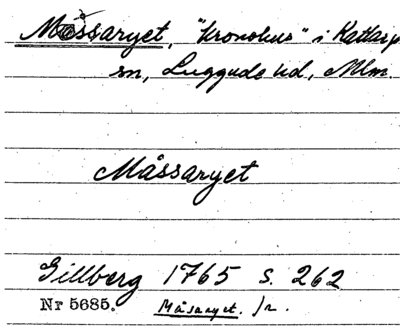 Måssaryet, "kronohus" i Kattarp
sn, Luggude hd, Mlm.
Måssaryet
Gillberg 1765 s. 262
Nr 5685. Måsaryet. /r.